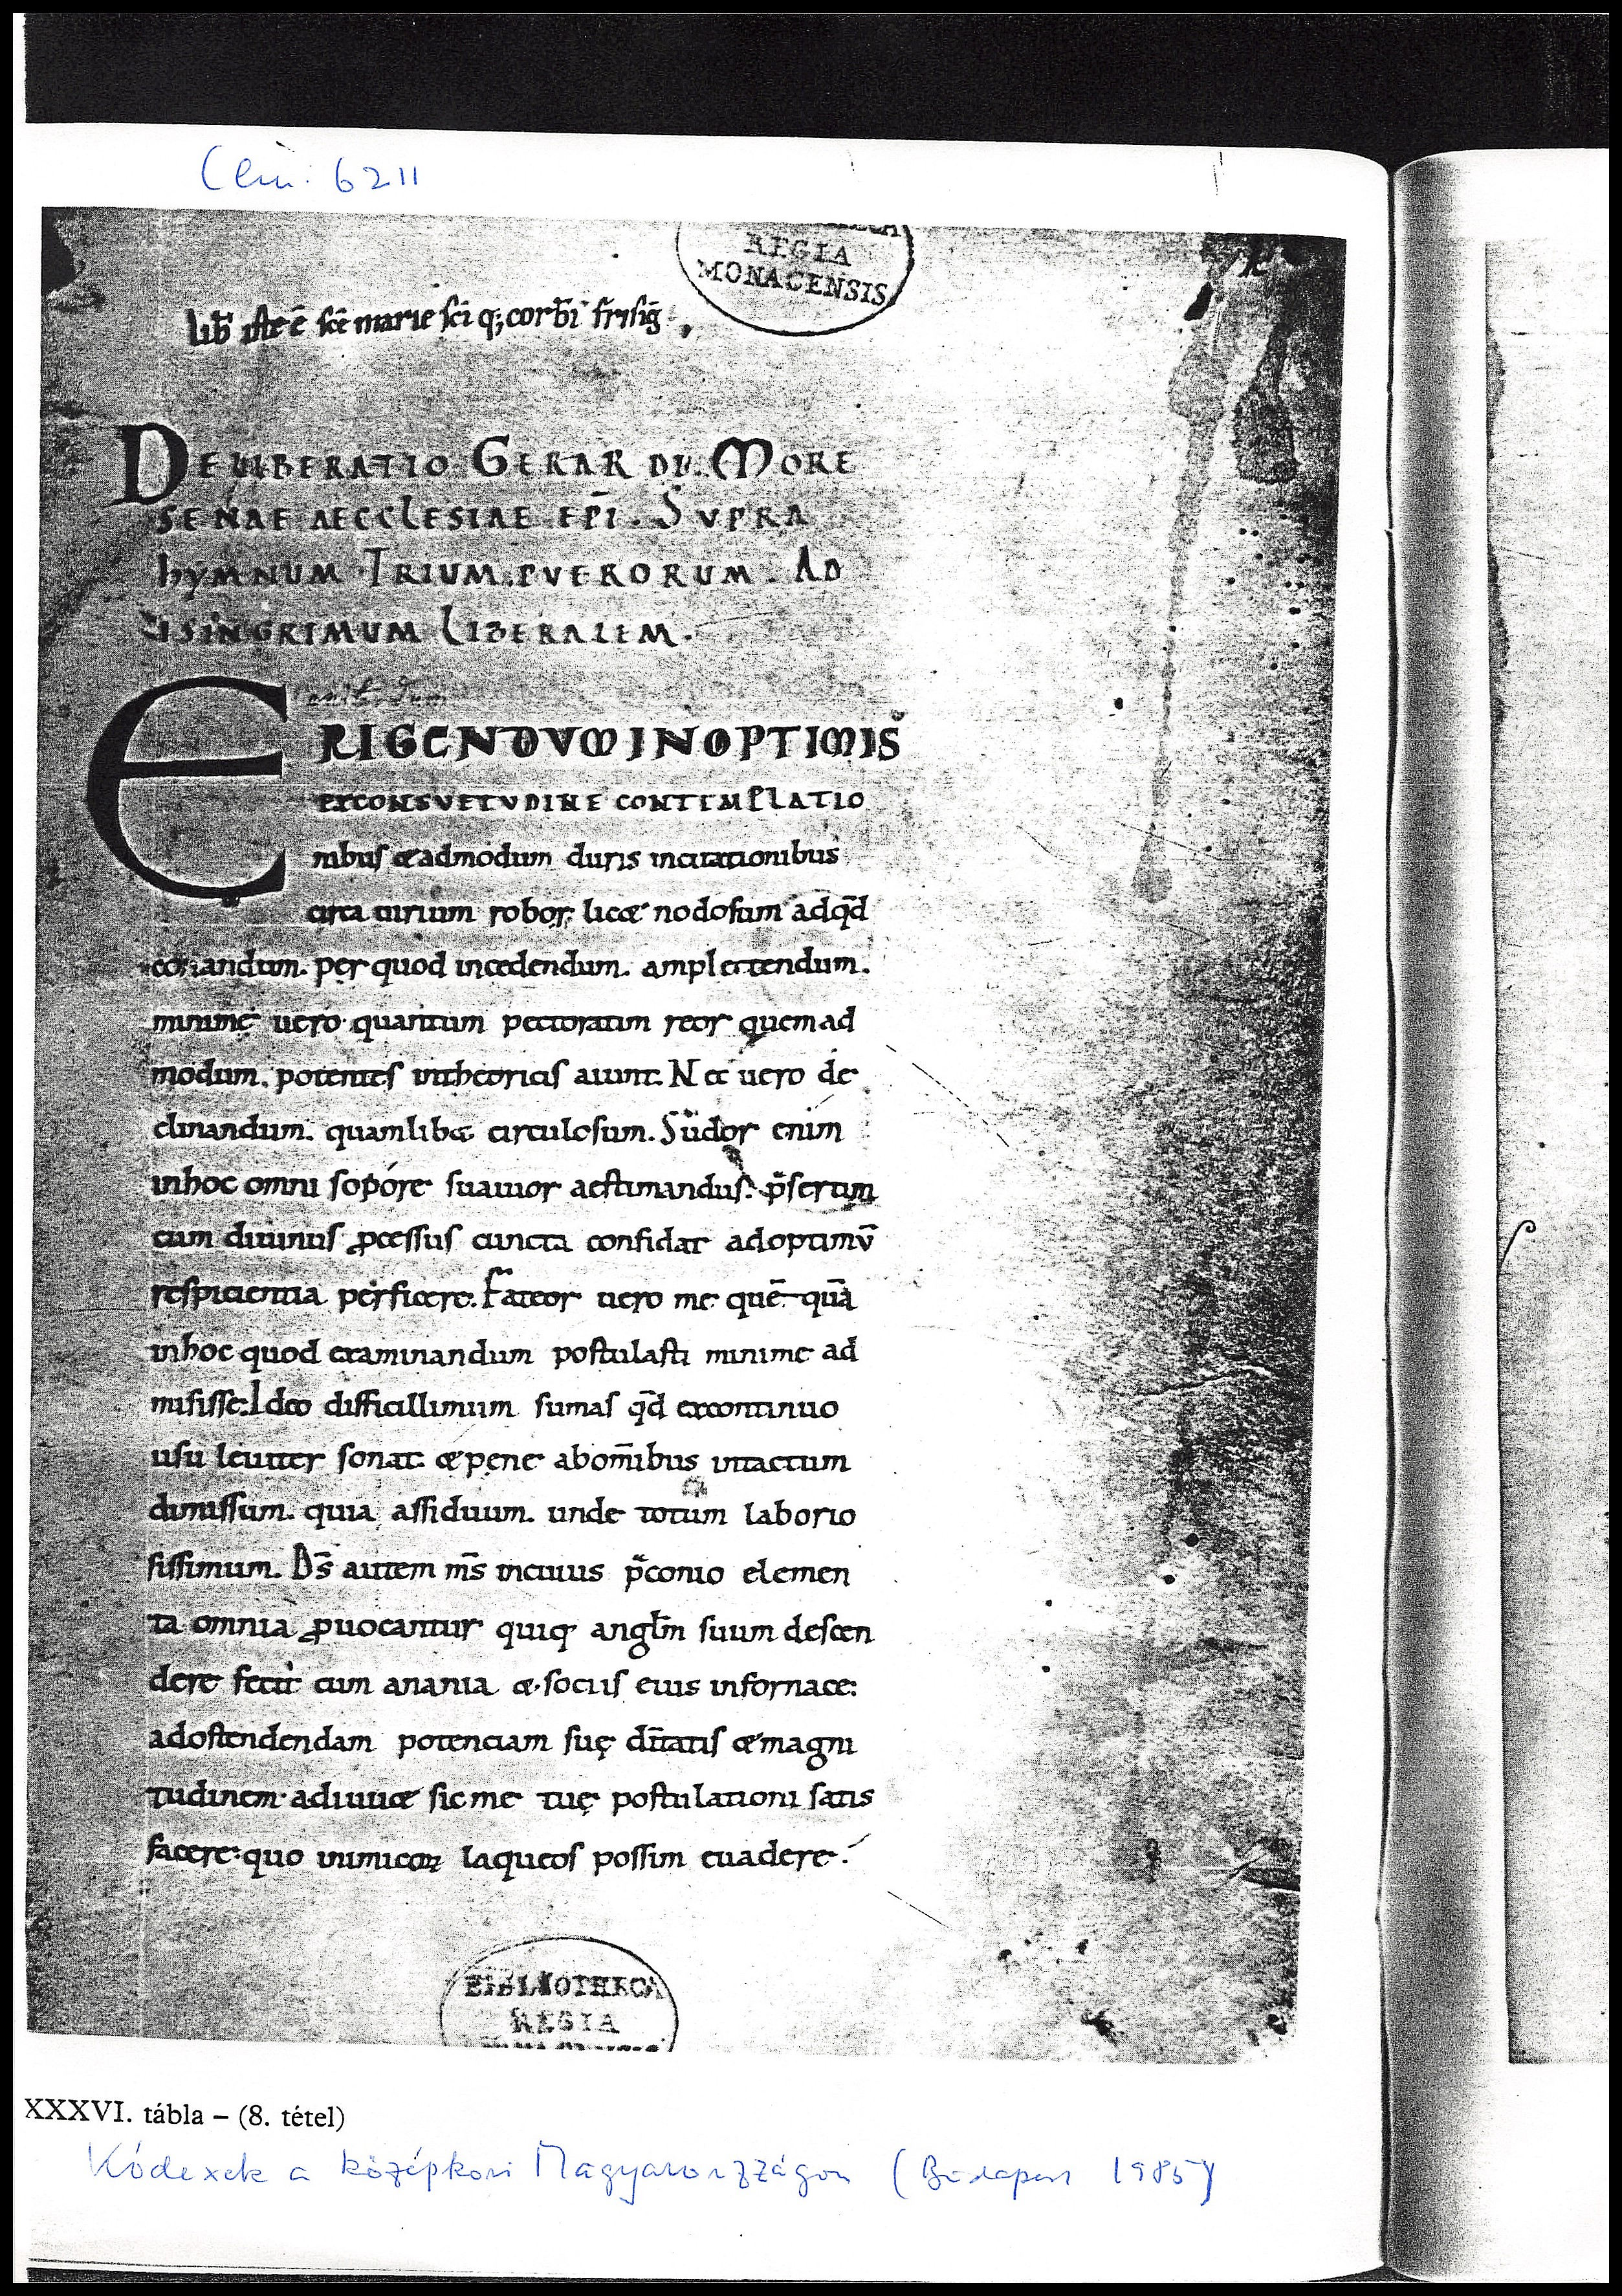 Clm. 6211
REGIA
MONACENSIS
lib̄ iste ē sc̄e marie sc̄i q; corb̄i frisīg
DELIBERATIO GERARDI. MORE
SENAE AECCLESIAE EP̄I. SUPRA
hYMNUM TRIUM PUERORUM. AD
ISINGRIMUM LIBERALEM.
ERIGENDUM IN OPTIMIS
EX CONSVETVDINE CONTEMPLATIO
nibus & admodum duris incitationibus
circa cirium robor; lic& nodosum ad qd̄
coriandum. per quod incedendum. amplectendum.
minime uero quantum pectoratim reor quemad
modum. potentes in theoricis aiunt. Nec uero de
clinandum. quamlib& circulosum. Sudor enim
in hoc omni sopore suauior aestimandus. p̄sertim
cum diuinus ꝓcessus cuncta confidat ad optimū
respicientia perficere. Fateor uero me quē quā
in hoc quod examinandum postulasti minime ad
misisse. Ideo difficillimum sumas qd̄ ex continuo
usu leuiter sonat & pene ab om̄ibus intactum
dimissum. quia assiduum. unde totum laborio
sissimum. Ds̄ autem ms̄ in cuius p̄conio elemen
ta omnia ꝓuocantur quiq; anglm̄ suum descen
dere fecit cum anania & sociis eius in fornace:
ad ostendendam potenciam suę dn̄itatis & magni
tudinem adiuu& sic me tuę postulationi satis
facere: quo inimicoꝝ laqueos possim euadere.
BIBLIOTHECA
REGIA
XXXVI. tábla – (8. tétel)
Kódexek a középkori Magyarországon (Budapest 1985)